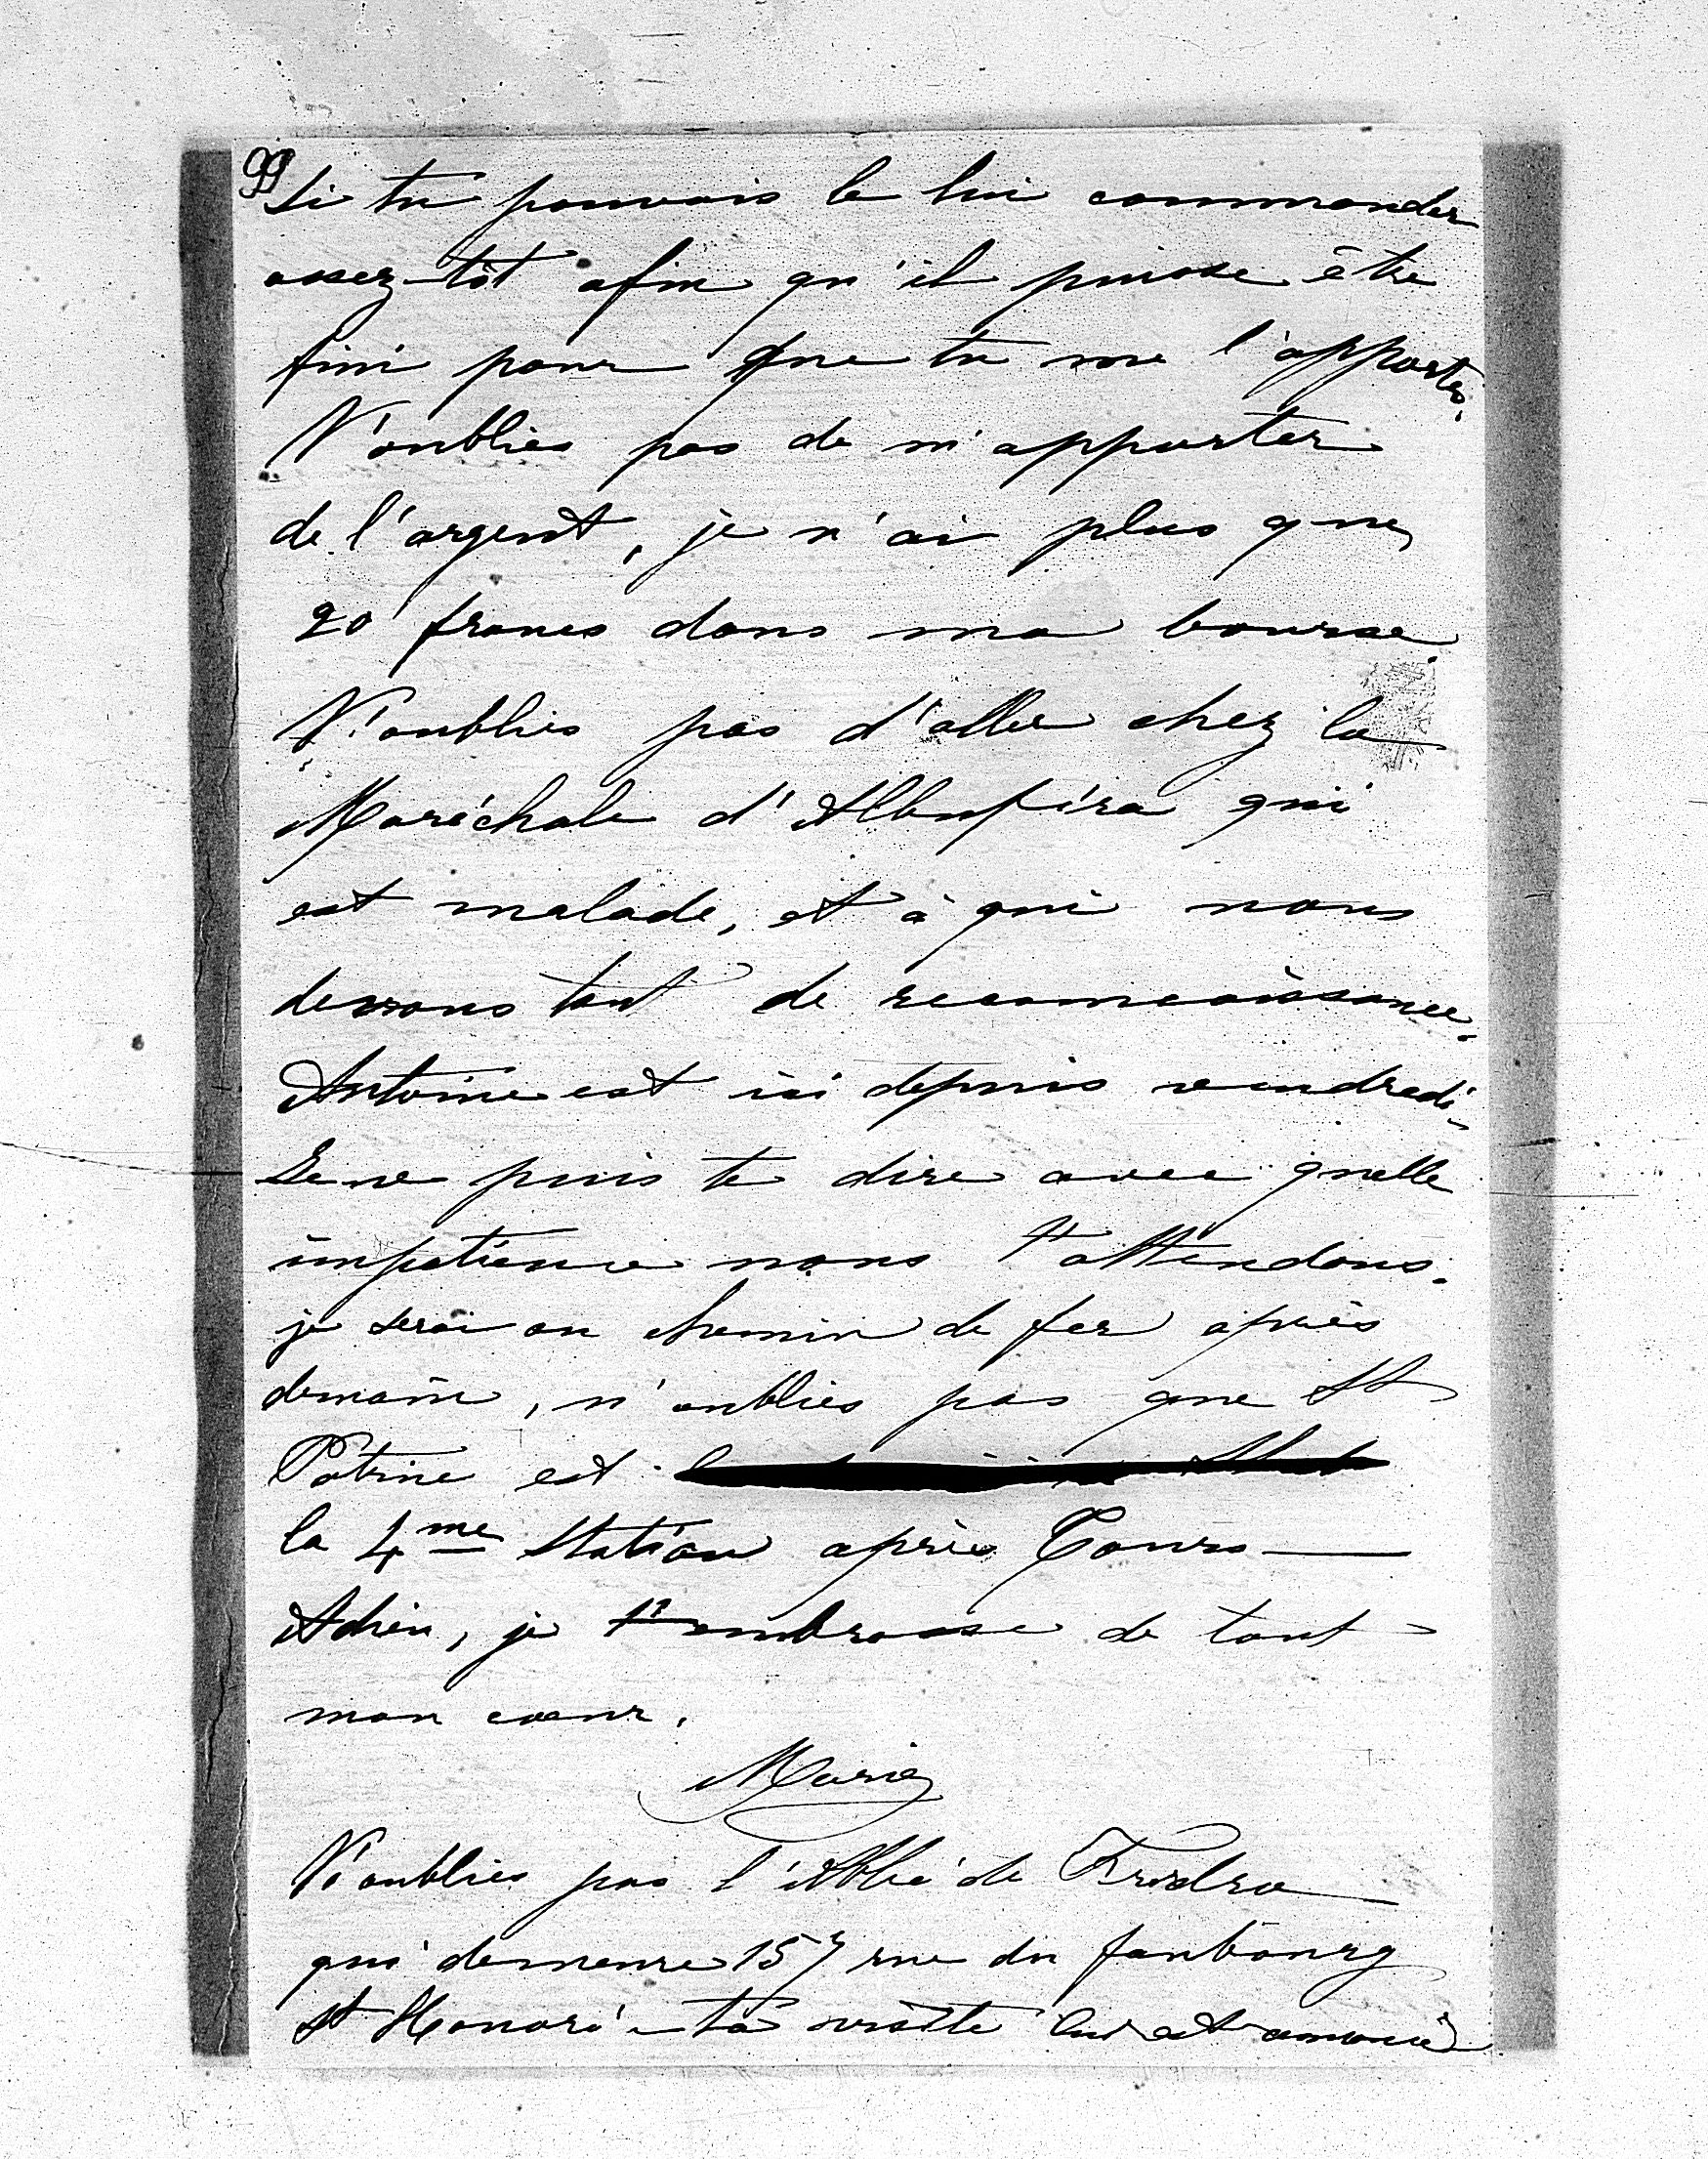 99
Si tu pouvais le lui commander
assez tôt afin qu'il puisse être
fini pour que tu me l'apportes.
N'oublies pas de m'apporter
de l'argent, je n'ai plus que
20 francs dans ma bourse.
N'oublies pas d'aller chez la
Maréchale d'Albuféra qui
est malade, et à qui nous
devons tant de reconnaissance.
Antoine est ici depuis vendredi.
Je ne puis te dire avec quelle
impatience nous t'attendons.
je serai au chemin de fer après
demain, n'oublies pas que St
Patrice est
la 4me Station après Tours —
Adieu, je t'embrasse de tout
mon cœur.
Marie
N'oublies pas l'Abbé de
qui demeure 157 rue du faubourg
St Honoré ta visite lui est annoncée